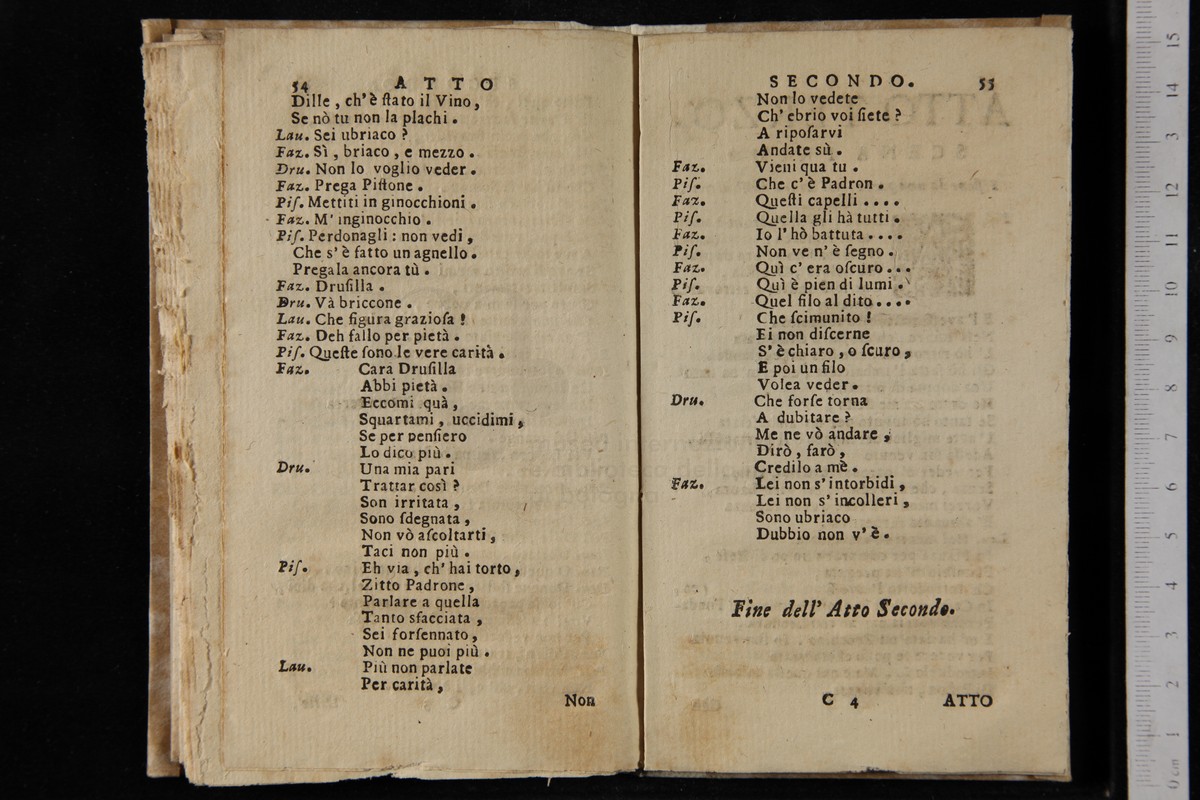 54 ATTO
Dille, ch'è ſtato il Vino,
Se nò tu non la plachi.
Lau. Sei ubriaco?
Faz. Sì, briaco, e mezzo.
Dru. Non lo voglio veder.
Faz. Prega Piſtone.
Piſ. Mettiti in ginocchioni.
Faz. M'inginocchio.
Piſ. Perdonagli: non vedi,
Che s'è fatto un agnello.
Pregala ancora tù.
Faz. Druſilla.
Dru. Và briccone.
Lau. Che figura grazioſa!
Faz. Deh fallo per pietà.
Piſ. Queſte ſono le vere carità.
Faz. Cara Druſilla
Abbi pietà.
Eccomi quà,
Squartami, uccidimi,
Se per penſiero
Lo dico più.
Dru. Una mia pari
Trattar così?
Son irritata,
Sono ſdegnata,
Non vò aſcoltarti,
Taci non più.
Piſ. Eh via, ch'hai torto,
Zitto Padrone,
Parlare a quella
Tanto sfacciata,
Sei forſennato,
Non ne puoi più.
Lau. Più non parlate
Per carità,
Non
SECONDO. 55
Non lo vedete
Ch'ebrio voi ſiete?
A ripoſarvi
Andate sù.
Faz. Vieni qua tu.
Piſ. Che c'è Padron.
Faz. Queſti capelli....
Piſ. Quella gli hà tutti.
Faz. Io l'hò battuta....
Piſ. Non ve n'è ſegno.
Faz. Quì c'era oſcuro...
Piſ. Quì è pien di lumi.
Faz. Quel filo al dito....
Piſ. Che ſcimunito!
Ei non diſcerne
S'è chiaro, o ſcuro,
E poi un filo
Volea veder.
Dru. Che forſe torna
A dubitare?
Me ne vò andare,
Dirò, farò,
Credilo a mè.
Faz. Lei non s'intorbidi,
Lei non s'incolleri,
Sono ubriaco
Dubbio non v'è.
Fine dell'Atto Secondo.
C 4 ATTO